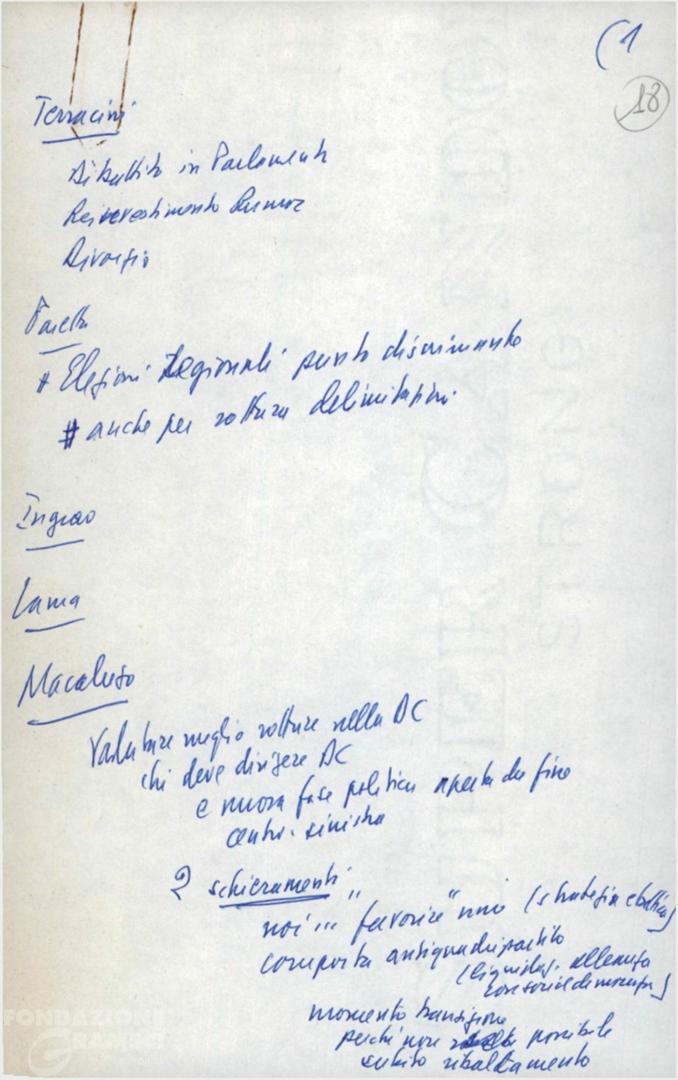 (1
18
Terracini
Dibattito in Parlamento
Reinvestimento Rumor
Divorzio
Paetta
# Elezioni Regionali punto discriminante
# anche per rottura delimitazioni
Ingrao
Lama
Macaluso
Valutare meglio rotture nella DC
chi deve dirigere DC
e nuova fase politica aperta da fine
centro-sinistra
2 schieramenti
noi ... "favorire" uno (strategia
comporta antiquadripartito
(liquidaz. alleanza
con socialdemocrazia)
momento transizione
perché non possibile
subito ribaltamento
FONDAZIONE
GRAMSCI